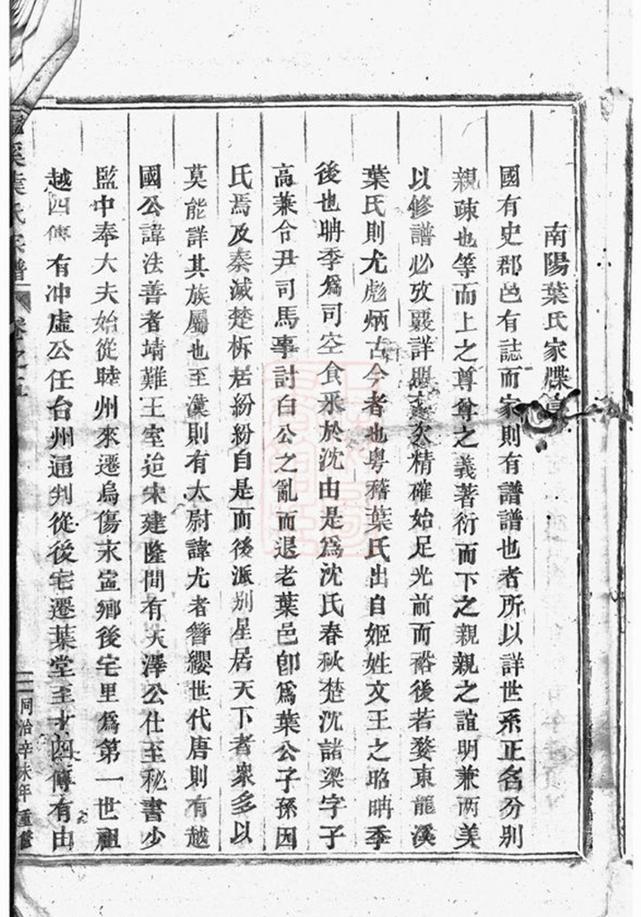 南陽葉氏家牒
國有史郡邑有誌而家則有譜譜也者所以詳世系正名分別
親疎也等而上之尊尊之義著衍而下之親親之誼明兼兩美
以修譜必攷覈詳次精確始足光前而裕後若婺東龍溪
葉氏則尤彪炳古今者也粵稽葉氏出自姬姓文王之昭聃季
後也聃季爲司空食釆於沈由是爲沈氏春秋楚沈諸梁字子
高兼令尹司馬事討白公之亂而退老葉邑卽爲葉公子孫因
氏焉及秦滅楚柝居紛紛自是而後派别星居天下者衆多以
莫能詳其族屬也至漢則有太尉諱尤者簪纓世代唐則有越
國公諱法善者靖難王室迨宋建隆間有天澤公仕至秘書少
監中奉大夫始從睦州來遷烏傷永寍鄉後宅里爲第一世祖
越四傳有冲虛公任台州通判從後宅遷葉堂至十四傳有由
溪葉氏宗譜
卷之五
同治辛未年重修